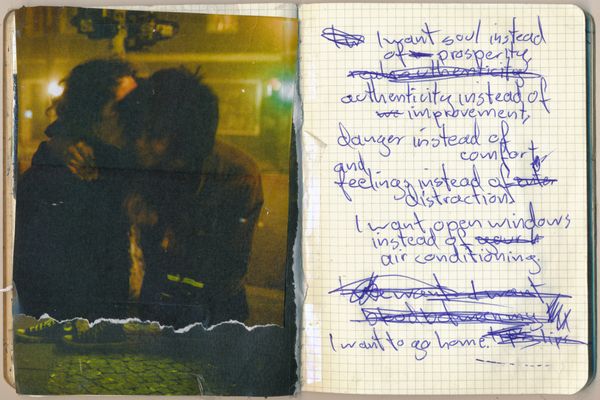 I want soul instead
of prosperity
authenticity instead of
improvement,
danger instead of
comfort
and
feelings instead of
distraction.
I want open windows
instead of
air conditioning.
I want to go home.